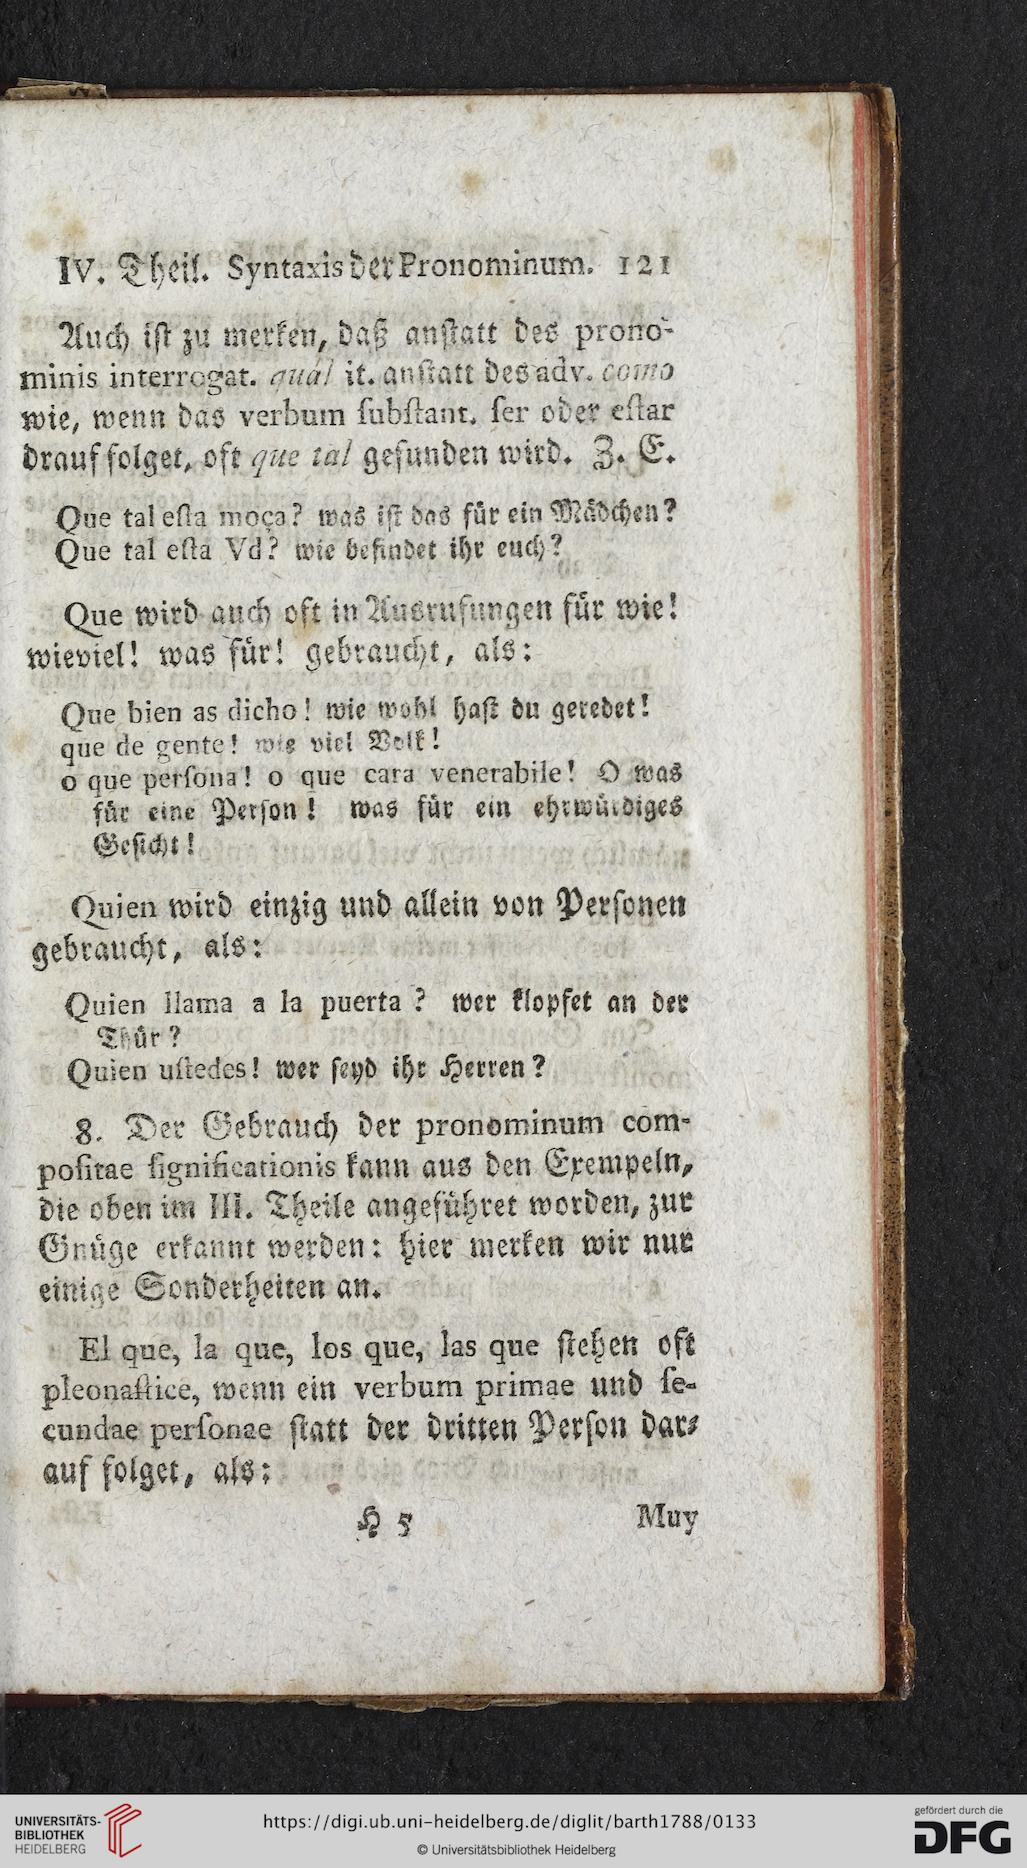 IV. Theil. Syntaxis der Pronominum. 121
Auch ist zu merken, daß anstatt des prono-
minis interrogat. qual it. anstatt des adv. como
wie, wenn das verbum ſubſtant. ſer oder eſtar
drauf folget, oft que tal gefunden wird. Z. E.
Que tal eſta moça? was iſt das für ein Mädchen?
Que tal eſta Vd? wie befindet ihr euch?
Que wird auch oft in Ausrufungen für wie!
wieviel! was für! gebraucht, als:
Que bien as dicho! wie wohl haſt du geredet!
que de gente! wie viel Volk!
o que perſona! o que cara venerabile! O was
für eine Perſon! was für ein ehrwürdiges
Geſicht!
Quien wird einzig und allein von Perſonen
gebraucht, als:
Quien llama a la puerta? wer klopfet an der
Thür?
Quien uſtedes! wer ſeyd ihr Herren?
8. Der Gebrauch der pronominum com-
poſitae ſignificationis kann aus den Exempeln,
die oben im III. Theile angeführet worden, zur
Gnüge erkannt werden: hier merken wir nur
einige Sonderheiten an.
El que, la que, los que, las que ſtehen oft
pleonaſtice, wenn ein verbum primae und ſe-
cundae perſonae ſtatt der dritten Perſon dar-
auf folget, als:
H 5 Muy
UNIVERSITÄTS-
BIBLIOTHEK
HEIDELBERG
https://digi.ub.uni-heidelberg.de/diglit/barth1788/0133
© Universitätsbibliothek Heidelberg
gefördert durch die
DFG